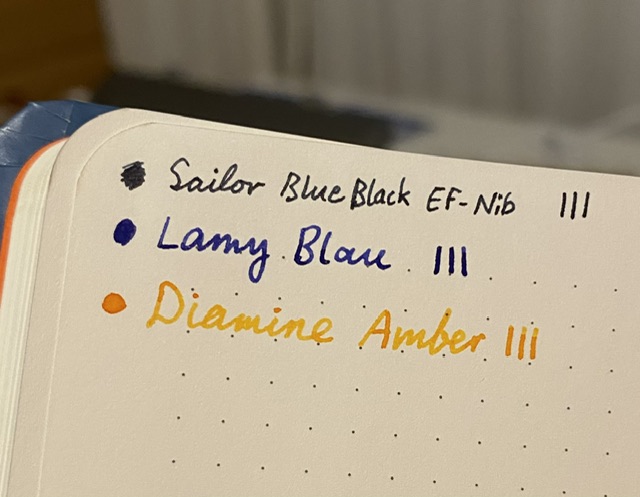 Sailor Blue Black EF-Nib III
Lamy Blau III
Diamine Amber III